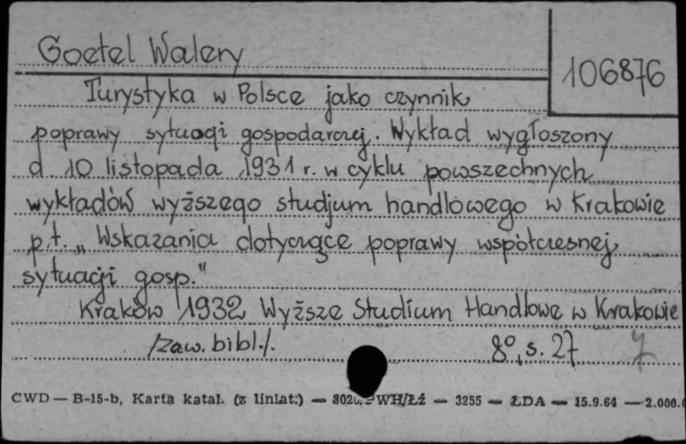 Goetel Walery
106876
Turystyka w Polsce jako czynnik
poprawy sytuacji gospodarczej. Wykład wygłoszony
d. 10 listopada 1931 r. w cyklu powszechnych
wykładów wyższego studjum handlowego w Krakowie
p.t. „Wskazania dotyczące poprawy współczesnej
sytuacji gosp."
Kraków 1932 Wyższe Studium Handlowe w Krakowie
/zaw. bibl./. 8°, s. 27
CWD — B-15-b, Karta katal. (z liniat.) — WH/Łź — 3255 — ŁDA — 15.9.64 — 2.000.